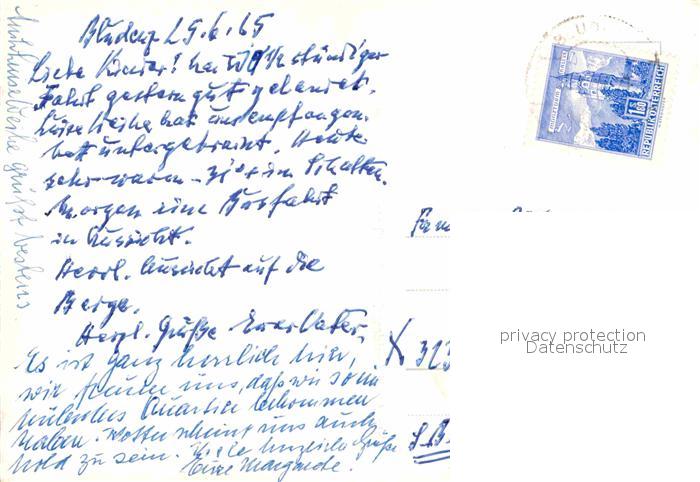 Bludenz 25.6.65
Liebe Kinder! Nach 9½ stündiger
Fahrt gestern gut gelandet.
Luise Weihe hat uns empfangen.
bett untergebracht. Heute
sehr warm - 31° im Schatten.
Morgen eine Busfahrt
in Aussicht.
Herrl. Aussicht auf die
Berge.
Herzl. Grüße Euer Vater.
Es ist ganz herrlich hier,
wir freuen uns, daß wir so ein
Quartier bekommen
haben. Wetter scheint uns auch
hold zu sein. Viele herzliche Grüße
Eure Margarete.
Weihe grüßt bestens
REPUBLIK ÖSTERREICH
Fam
X 323
privacy protection
Datenschutz